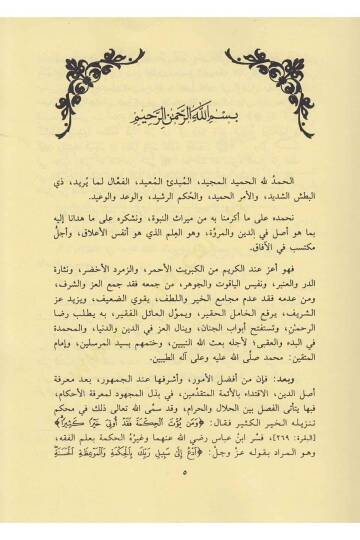 بسم الله الرحمن الرحيم
الحمدُ لله الحميد المجيد، المُبدئ المُعيد، الفعّال لما يُريد، ذي
البطش الشديد، والأمر الحميد، والحُكم الرشيد، والوعد والوعيد.
نحمده على ما أكرمنا به من ميراث النبوة، ونشكره على ما هدانا إليه
بما هو أصل في الدين والمروَّة، وهو العِلم الذي هو أنفس الأعلاق، وأجلُّ
مكتسب في الآفاق.
فهو أعز عند الكريم من الكبريت الأحمر، والزمرد الأخضر، ونثارة
الدر والعنبر، ونفيس الياقوت والجوهر، من جمعه فقد جمع العز والشرف،
ومن عدمه فقد عدم مجامع الخير واللطف، يقوي الضعيف، ويزيد عز
الشريف، يرفع الخامل الحقير، ويموِّل العائل الفقير، به يطلب رضا
الرحمٰن، وتستفتح أبواب الجنان، وينال العز في الدين والدنيا، والمحمدة
في البدء والعقبى؛ لأجله بعث الله النبيين، وختمهم بسيد المرسلين، وإمام
المتقين: محمد صلَّى الله عليه وعلى آله الطيبين.
وبعد: فإن من أفضل الأمور، وأشرفها عند الجمهور، بعد معرفة
أصل الدين، الاقتداء بالأئمة المتقدِّمين، في بذل المجهود لمعرفة الأحكام،
فيها يتأتى الفصل بين الحلال والحرام، وقد سمَّى الله تعالى ذلك في محكم
تنزيله الخير الكثير فقال: ﴿وَمَن يُؤْتَ الْحِكْمَةَ فَقَدْ أُوتِيَ خَيْرًا كَثِيرًا﴾
[البقرة: ٢٦٩]، فسّر ابنُ عباس رضي الله عنهما وغيرُهُ الحكمة بعلم الفقه،
وهو المراد بقوله عزَّ وجلَّ: ﴿ادْعُ إِلَىٰ سَبِيلِ رَبِّكَ بِالْحِكْمَةِ وَالْمَوْعِظَةِ الْحَسَنَةِ
٥